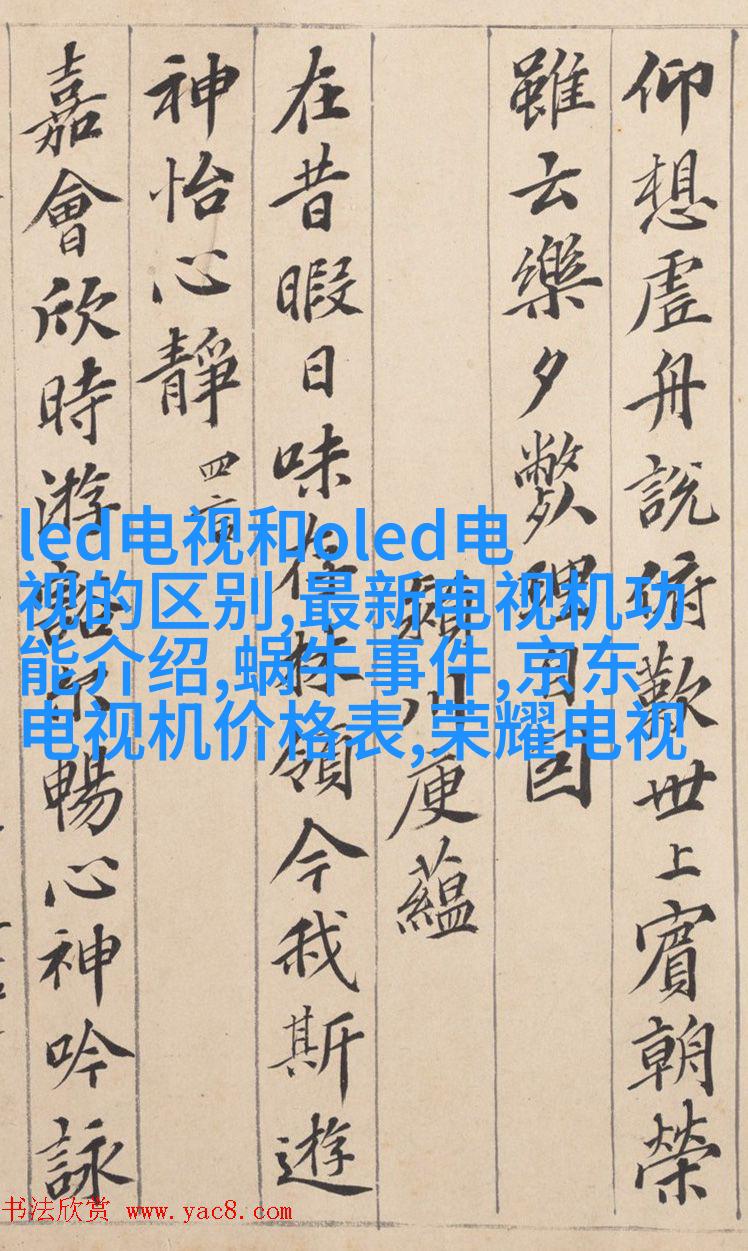 仰想虛舟說俯歎世上賓朝榮
雖云樂夕斃理自因
潁川庾蘊
在昔暇日味存林嶺今我斯遊
神怡心靜 四言
嘉會欣時游豁尒暢心神吟詠
led电视和oled电
视的区别,最新电视机功
能介绍,蜗牛事件,京东
电视机价格表,荣耀电视
书法欣赏 www.yac8.com